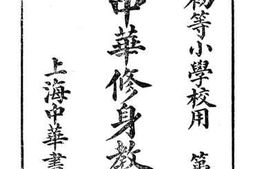 初等小學校用 第
中華修身教
上海中華書